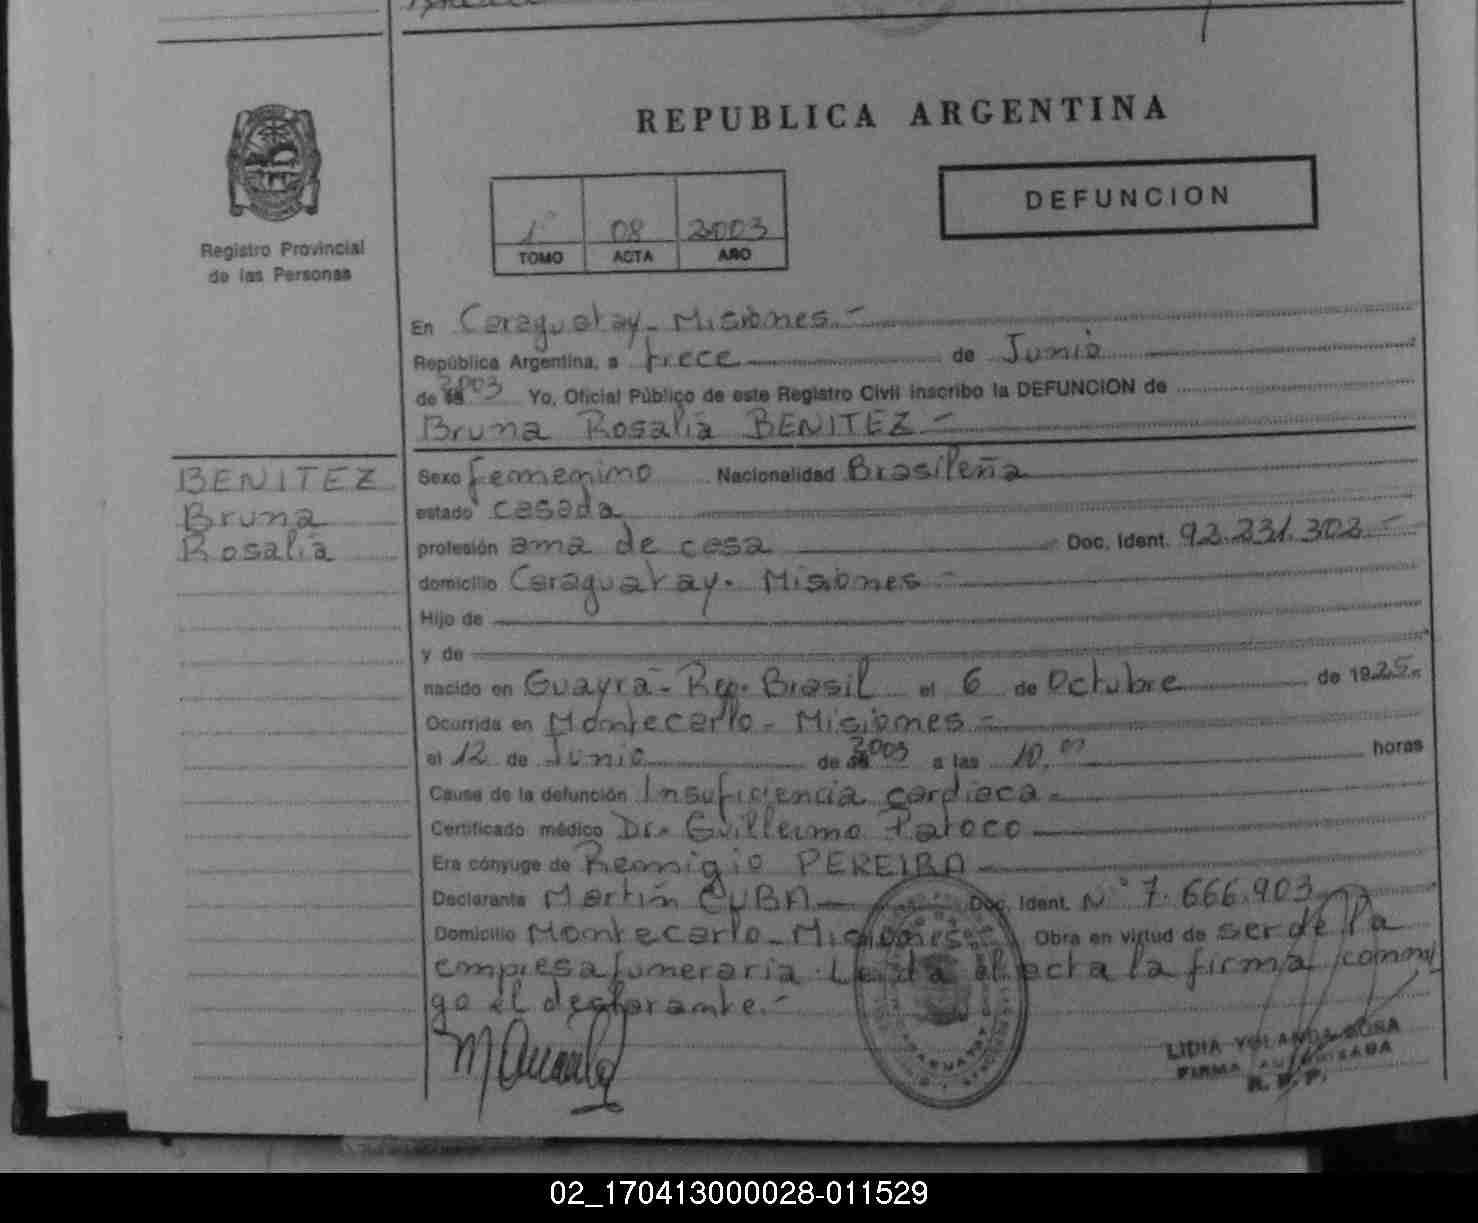 REPUBLICA ARGENTINA
DEFUNCION
1° 08 2003
TOMO ACTA AÑO
Registro Provincial
de las Personas
En Caraguatay - Misiones -
República Argentina, a trece de Junio
de 2003 Yo, Oficial Público de este Registro Civil inscribo la DEFUNCION de
Bruna Rosalia BENITEZ -
BENITEZ
Bruna
Rosalia
Sexo femenino Nacionalidad Brasileña
estado casada
profesión ama de casa Doc. Ident. 92.231.302 -
domicilio Caraguatay - Misiones -
Hijo de
y de
nacido en Guayra - Rep. Brasil el 6 de Octubre de 1925.
Ocurrida en Montecarlo - Misiones -
el 12 de Junio de 2003 a las 10,00 horas
Causa de la defunción Insuficiencia cardiaca -
Certificado médico Dr. Guillermo
Era cónyuge de Remigio PEREIRA
Declarante Martín CUBA Doc. Ident. N° 7.666.903
Domicilio Montecarlo - Misiones - Obra en virtud de ser de la
empresa funeraria. Leida el acta la firma conmi
go el declarante. -
LIDIA YOLANDA SOSA
FIRMA AUTORIZADA
R. P. P.
02_170413000028-011529